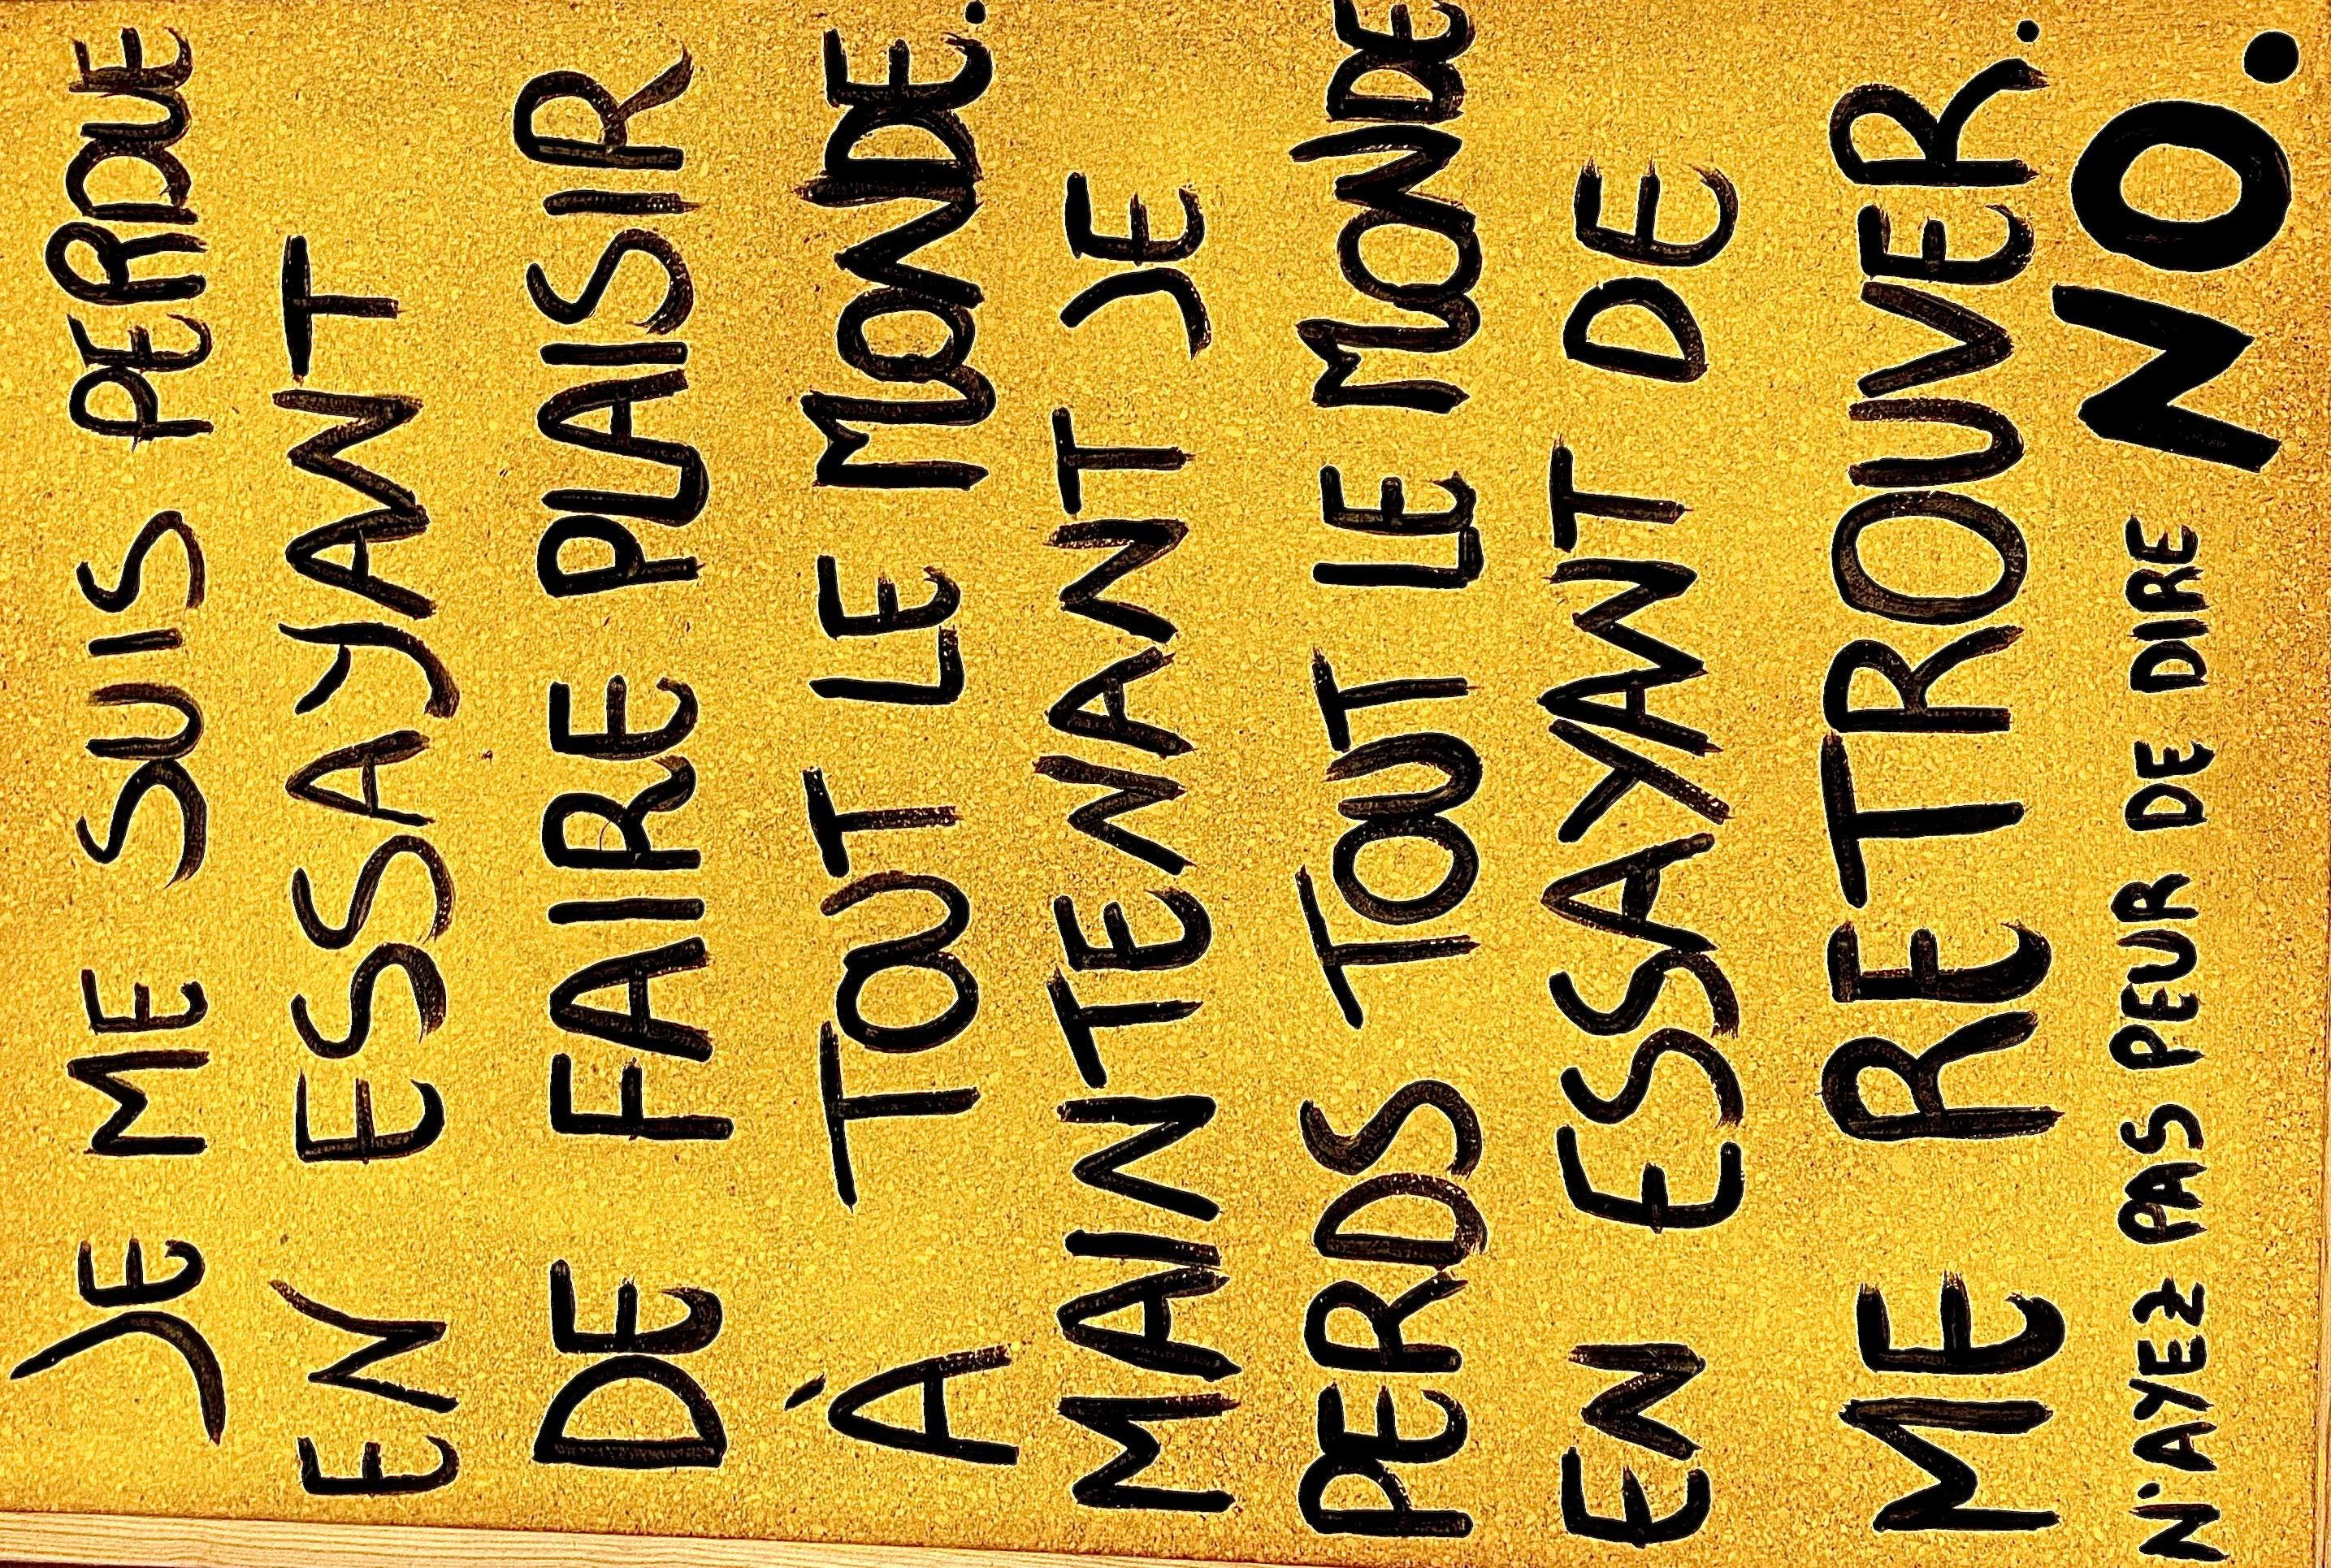 JE ME SUIS PERDUE
EN ESSAYANT
DE FAIRE PLAISIR
À TOUT LE MONDE.
MAINTENANT JE
PERDS TOUT LE MONDE
EN ESSAYANT DE
ME RETROUVER.
N'AYEZ PAS PEUR DE DIRE NO.